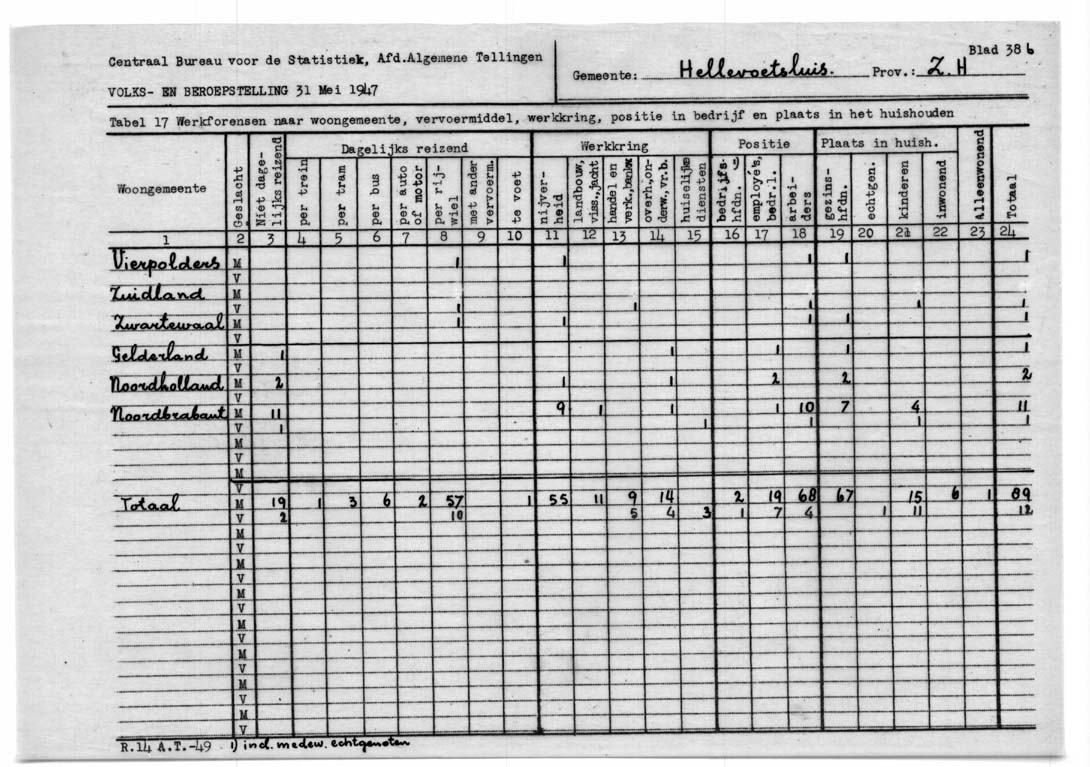 Blad 38 b
Centraal Bureau voor de Statistiek, Afd.Algemene Tellingen
Gemeente: Hellevoetsluis. Prov.: Z.H
VOLKS- EN BEROEPSTELLING 31 Mei 1947
Tabel 17 Werkforensen naar woongemeente, vervoermiddel, werkkring, positie in bedrijf en plaats in het huishouden
Woongemeente | Geslacht | Niet dagelijks reizend | Dagelijks reizend | Werkkring | Positie | Plaats in huish. | Alleenwonend | Totaal
per trein | per tram | per bus | per auto of motor | per rij-wiel | met ander vervoerm. | te voet | nijver-heid | landbouw, viss.,jacht | handel en verk.,bankw | overh.,on-derw.,vr.b. | huiselijke diensten | bedrijfs-hfdn. 1) | employé's, bedr.l. | arbei-ders | gezins-hfdn. | echtgen. | kinderen | inwonend
1 2 3 4 5 6 7 8 9 10 11 12 13 14 15 16 17 18 19 20 21 22 23 24
Vierpolders M 1 1 1 1 1
V
Zuidland M
V 1 1 1 1 1
Zwartewaal M 1 1 1 1 1
V
Gelderland M 1 1 1 1 1
V
Noordholland M 2 1 1 2 2 2
V
Noordbrabant M 11 9 1 1 1 10 7 4 11
V 1 1 1 1 1
M
V
M
V
Totaal M 19 1 3 6 2 57 1 55 11 9 14 2 19 68 67 15 6 1 89
V 2 10 5 4 3 1 7 4 1 11 12
M
V
M
V
M
V
M
V
M
V
M
V
M
V
R.14 A.T.-49 1) incl. medew. echtgenoten